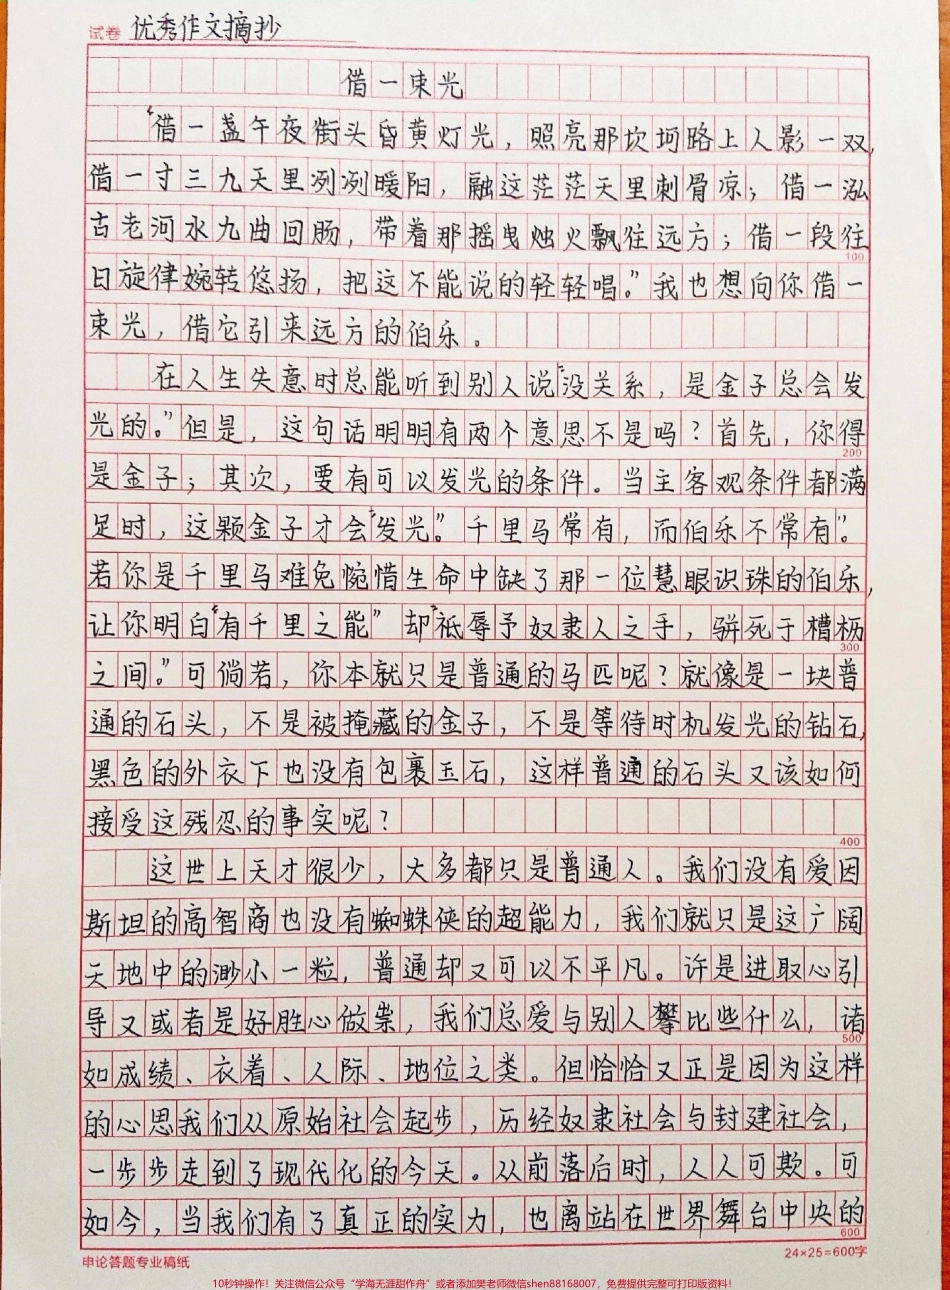 试卷 优秀作文摘抄
借一束光
“借一盏午夜街头昏黄灯光，照亮那坎坷路上人影一双，
借一寸三九天里冽冽暖阳，融这茫茫天里刺骨凉；借一泓
古老河水九曲回肠，带着那摇曳烛火飘往远方；借一段往
100
日旋律婉转悠扬，把这不能说的轻轻唱。”我也想向你借一
束光，借它引来远方的伯乐。
在人生失意时总能听到别人说“没关系，是金子总会发
光的。”但是，这句话明明有两个意思不是吗？首先，你得
200
是金子；其次，要有可以发光的条件。当主客观条件都满
足时，这颗金子才会“发光”。千里马常有，而伯乐不常有”。
若你是千里马难免惋惜生命中缺了那一位慧眼识珠的伯乐，
让你明白“有千里之能”却“祗辱予奴隶人之手，骈死于槽枥
300
之间。”可倘若，你本就只是普通的马匹呢？就像是一块普
通的石头，不是被掩藏的金子，不是等待时机发光的钻石，
黑色的外衣下也没有包裹玉石，这样普通的石头又该如何
接受这残忍的事实呢？
400
这世上天才很少，大多都只是普通人。我们没有爱因
斯坦的高智商也没有蜘蛛侠的超能力，我们就只是这广阔
天地中的渺小一粒，普通却又可以不平凡。许是进取心引
导又或者是好胜心做祟，我们总爱与别人攀比些什么，诸
500
如成绩、衣着、人际、地位之类。但恰恰又正是因为这样
的心思我们从原始社会起步，历经奴隶社会与封建社会，
一步步走到了现代化的今天。从前落后时，人人可欺。可
如今，当我们有了真正的实力，也离站在世界舞台中央的
600
申论答题专业稿纸 24×25=600字
10秒钟操作！关注微信公众号“学海无涯甜作舟”或者添加樊老师微信shen88168007，免费提供完整可打印版资料！